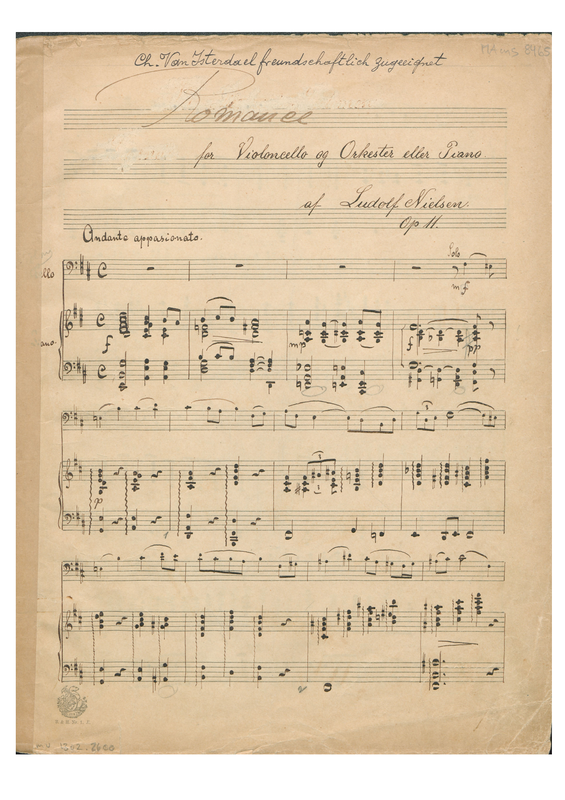 Ch. Van Isterdael freundschaftlich zugeeignet
MAms 8925
Romance
for Violoncello og Orkester eller Piano.
af Ludolf Nielsen.
Op 11.
Andante appasionato.
Solo
llo
mf
ano.
f
mp
f
pp
p